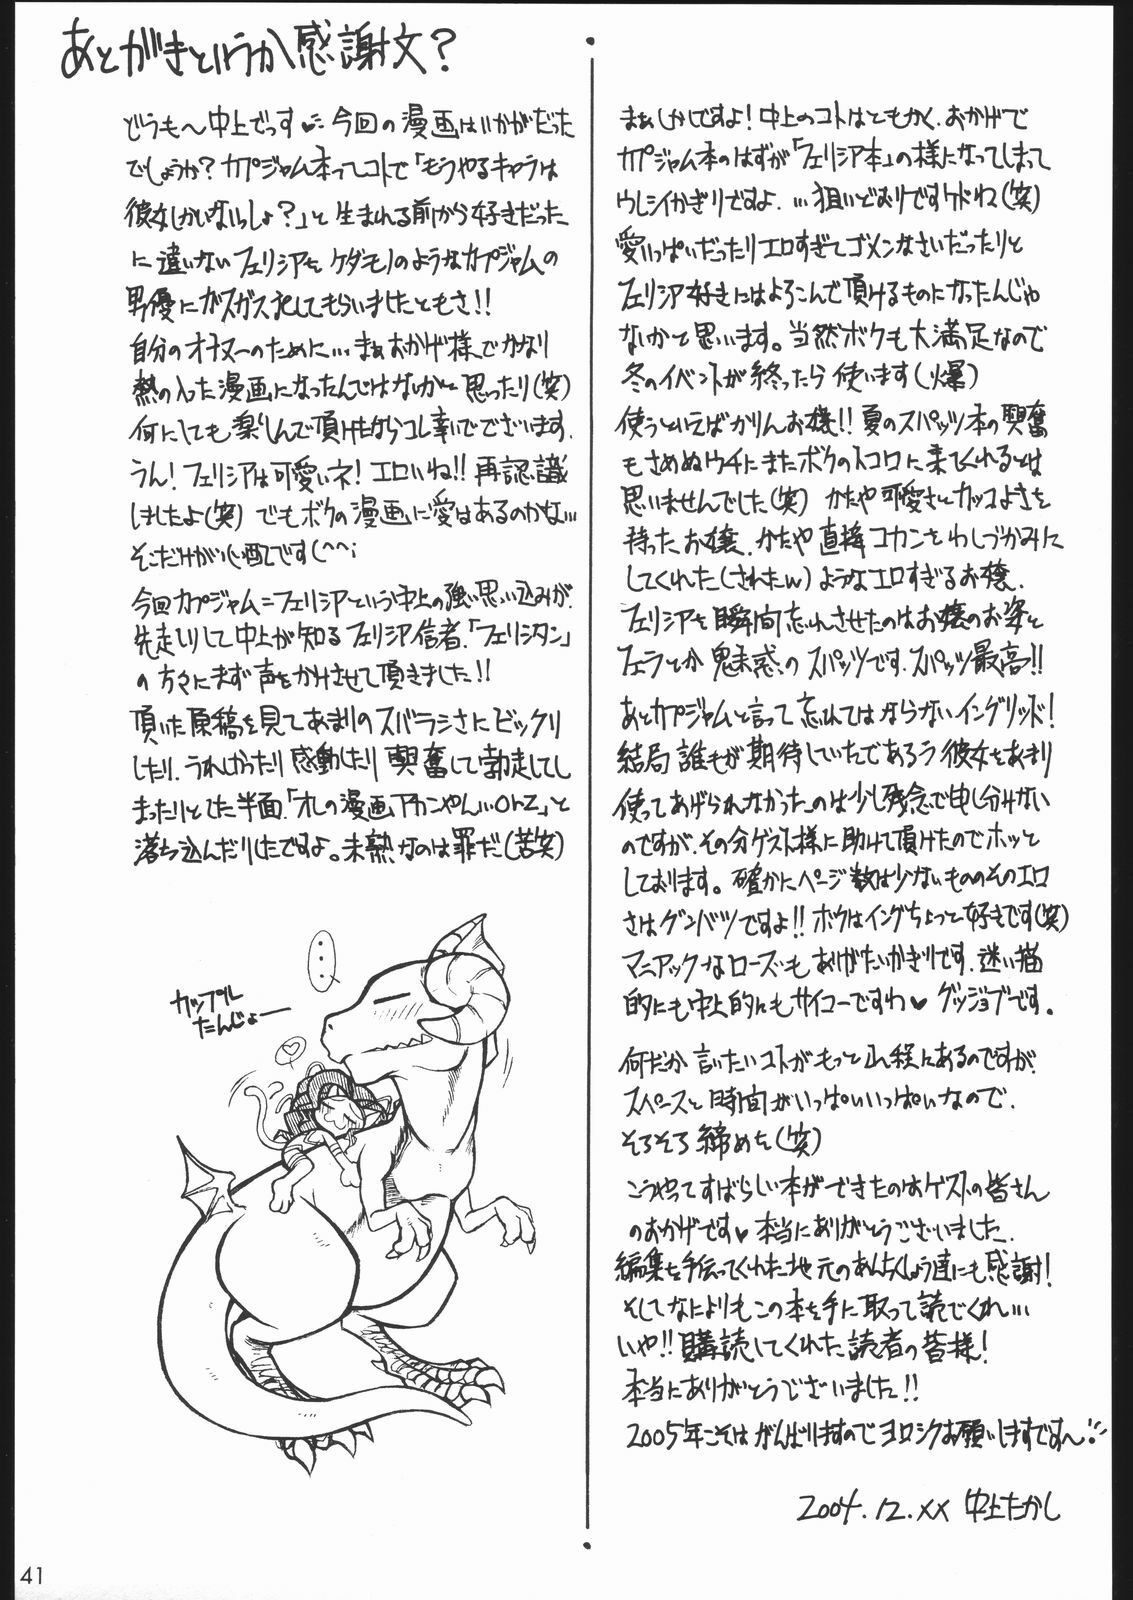 あとがきというか感謝文？
どうも〜中上でっす♥ 今回の漫画はいかがだった
でしょうか？カプジャム本ってコトで「もうやるキャラは
彼女しかいないっしょ？」と生まれる前から好きだった
に違いないフェリシアをケダモノのようなカプジャムの
男優にガスガス犯してもらいましたともさ!!
自分のオナヌーのために…まぁおかげ様でかなり
熱の入った漫画になったんではないかと思ったり(笑)
何にしても楽しんで頂けたならコレ幸いでございます.
うん！フェリシアは可愛いネ！エロいね!!再認識
しましたよ(笑) でもボクの漫画に愛はあるのかな…
そこだけが心配です(^^;
今回カプジャム=フェリシアという中上の強い思い込みが.
先走りして中上が知るフェリシア信者.「フェリシタン」
の方々にまず声をかけさせて頂きました!!
頂いた原稿を見てあまりのスバラシさにビックリ
したり.うれしかったり感動したり興奮して勃走してし
まったりとした半面「オレの漫画アカンやん…orz」と
落ち込んだりしたですよ。未熟なのは罪だ(苦笑)
…
カップル
たんじょー
まぁしかしですよ！中上のコトはともかく、おかげで
カプジャム本のはずが「フェリシア本」の様になってしまって
ウレシイかぎりですよ.…狙いどおりですケドね(笑)
愛いっぱいだったりエロすぎてゴメンなさいだったりと
フェリシア好きにはよろこんで頂けるものになったんじゃ
ないかと思います。当然ボクも大満足なので
冬のイベントが終ったら使います(爆)
使うといえばかりんお嬢!!夏のスパッツ本の興奮
もさめぬウチにまたボクのトコロに来てくれるとは
思いませんでした(笑) かたや可愛さとカッコよさを
持ったお嬢.かたや直接コカンをわしづかみに
してくれた(されたw)ようなエロすぎるお嬢.
フェリシアを瞬間忘れさせたのはお嬢のお姿と
フェラとか魅惑のスパッツです.スパッツ最高!!
あとカプジャムと言って忘れてはならないイングリッド！
結局誰もが期待していたであろう彼女をあまり
使ってあげられなかったのは少し残念で申し分けない
のですが.その分ゲスト様に助けて頂けたのでホッと
しております。確かにページ数は少ないもののそのエロ
さはグンバツですよ!!ボクはイングちょっと好きです(笑)
マニアックなローズもありがたいかぎりです.迷い猫
的にも中上的にもサイコーですわ♥グッジョブです。
何だか言いたいコトがもっと山程にあるのですが.
スペースと時間がいっぱいいっぱいなので.
そろそろ締めを(笑)
こうやってすばらしい本ができたのはゲストの皆さん
のおかげです♥本当にありがとうございました.
編集を手伝ってくれた地元のあんちくしょう達にも感謝！
そしてなによりもこの本を手に取って読でくれ…
いや!!購読してくれた読者の皆様！
本当にありがとうございました!!
2005年こそはがんばりますのでヨロシクお願いしますです〜!!
2004.12.XX 中上たかし
41